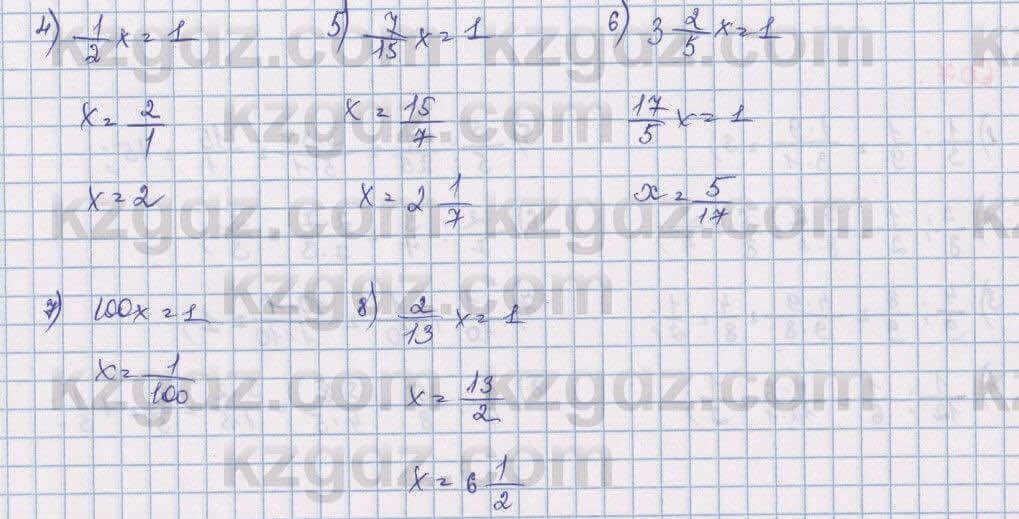 4) 1/2 x = 1
x = 2/1
x = 2
5) 7/15 x = 1
x = 15/7
x = 2 1/7
6) 3 2/5 x = 1
17/5 x = 1
x = 5/17
7) 100x = 1
x = 1/100
8) 2/13 x = 1
x = 13/2
x = 6 1/2
kzgdz.com
kzgdz.com
kzgdz.com
kzgdz.com
kzgdz.com
kzgdz.com
kzgdz.com
kzgdz.com
kzgdz.com
kzgdz.com